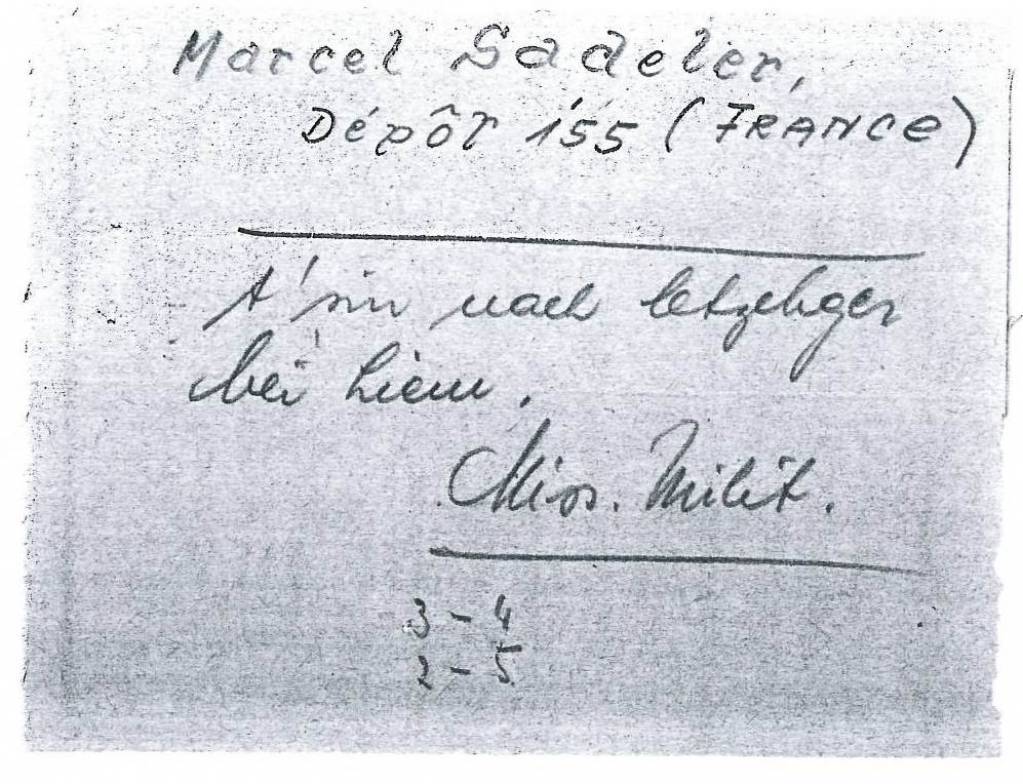 Marcel Sadeler,
Dépôt 155 (FRANCE)
t'sin nach letzebger
bei hiem.
Miss. Milit.
3 - 4
2 - 5